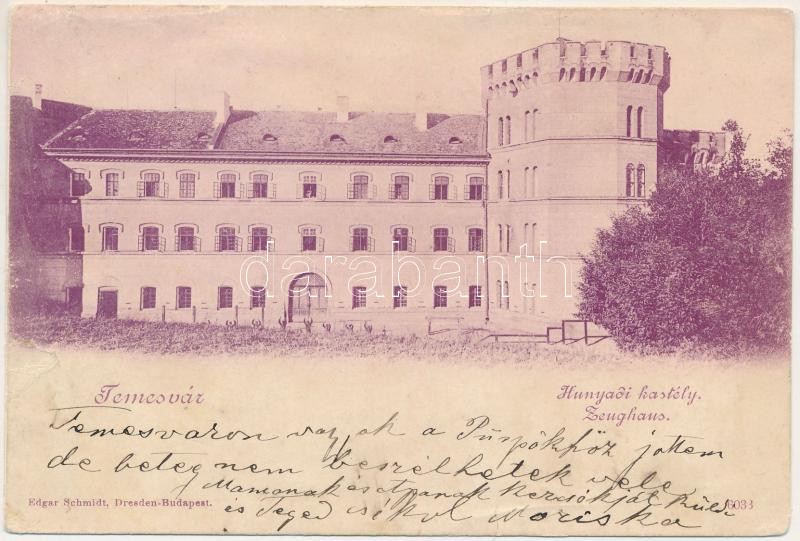 darabanth
Temesvár
Hunyadi kastély.
Zeughaus.
Temesvaron vagyok a Püspökhöz jöttem
de beteg nem beszélhetek vele
Mamanak és Apanak kezcsókját küldi
és Teged csókol Moriska
Edgar Schmidt, Dresden-Budapest.
6033